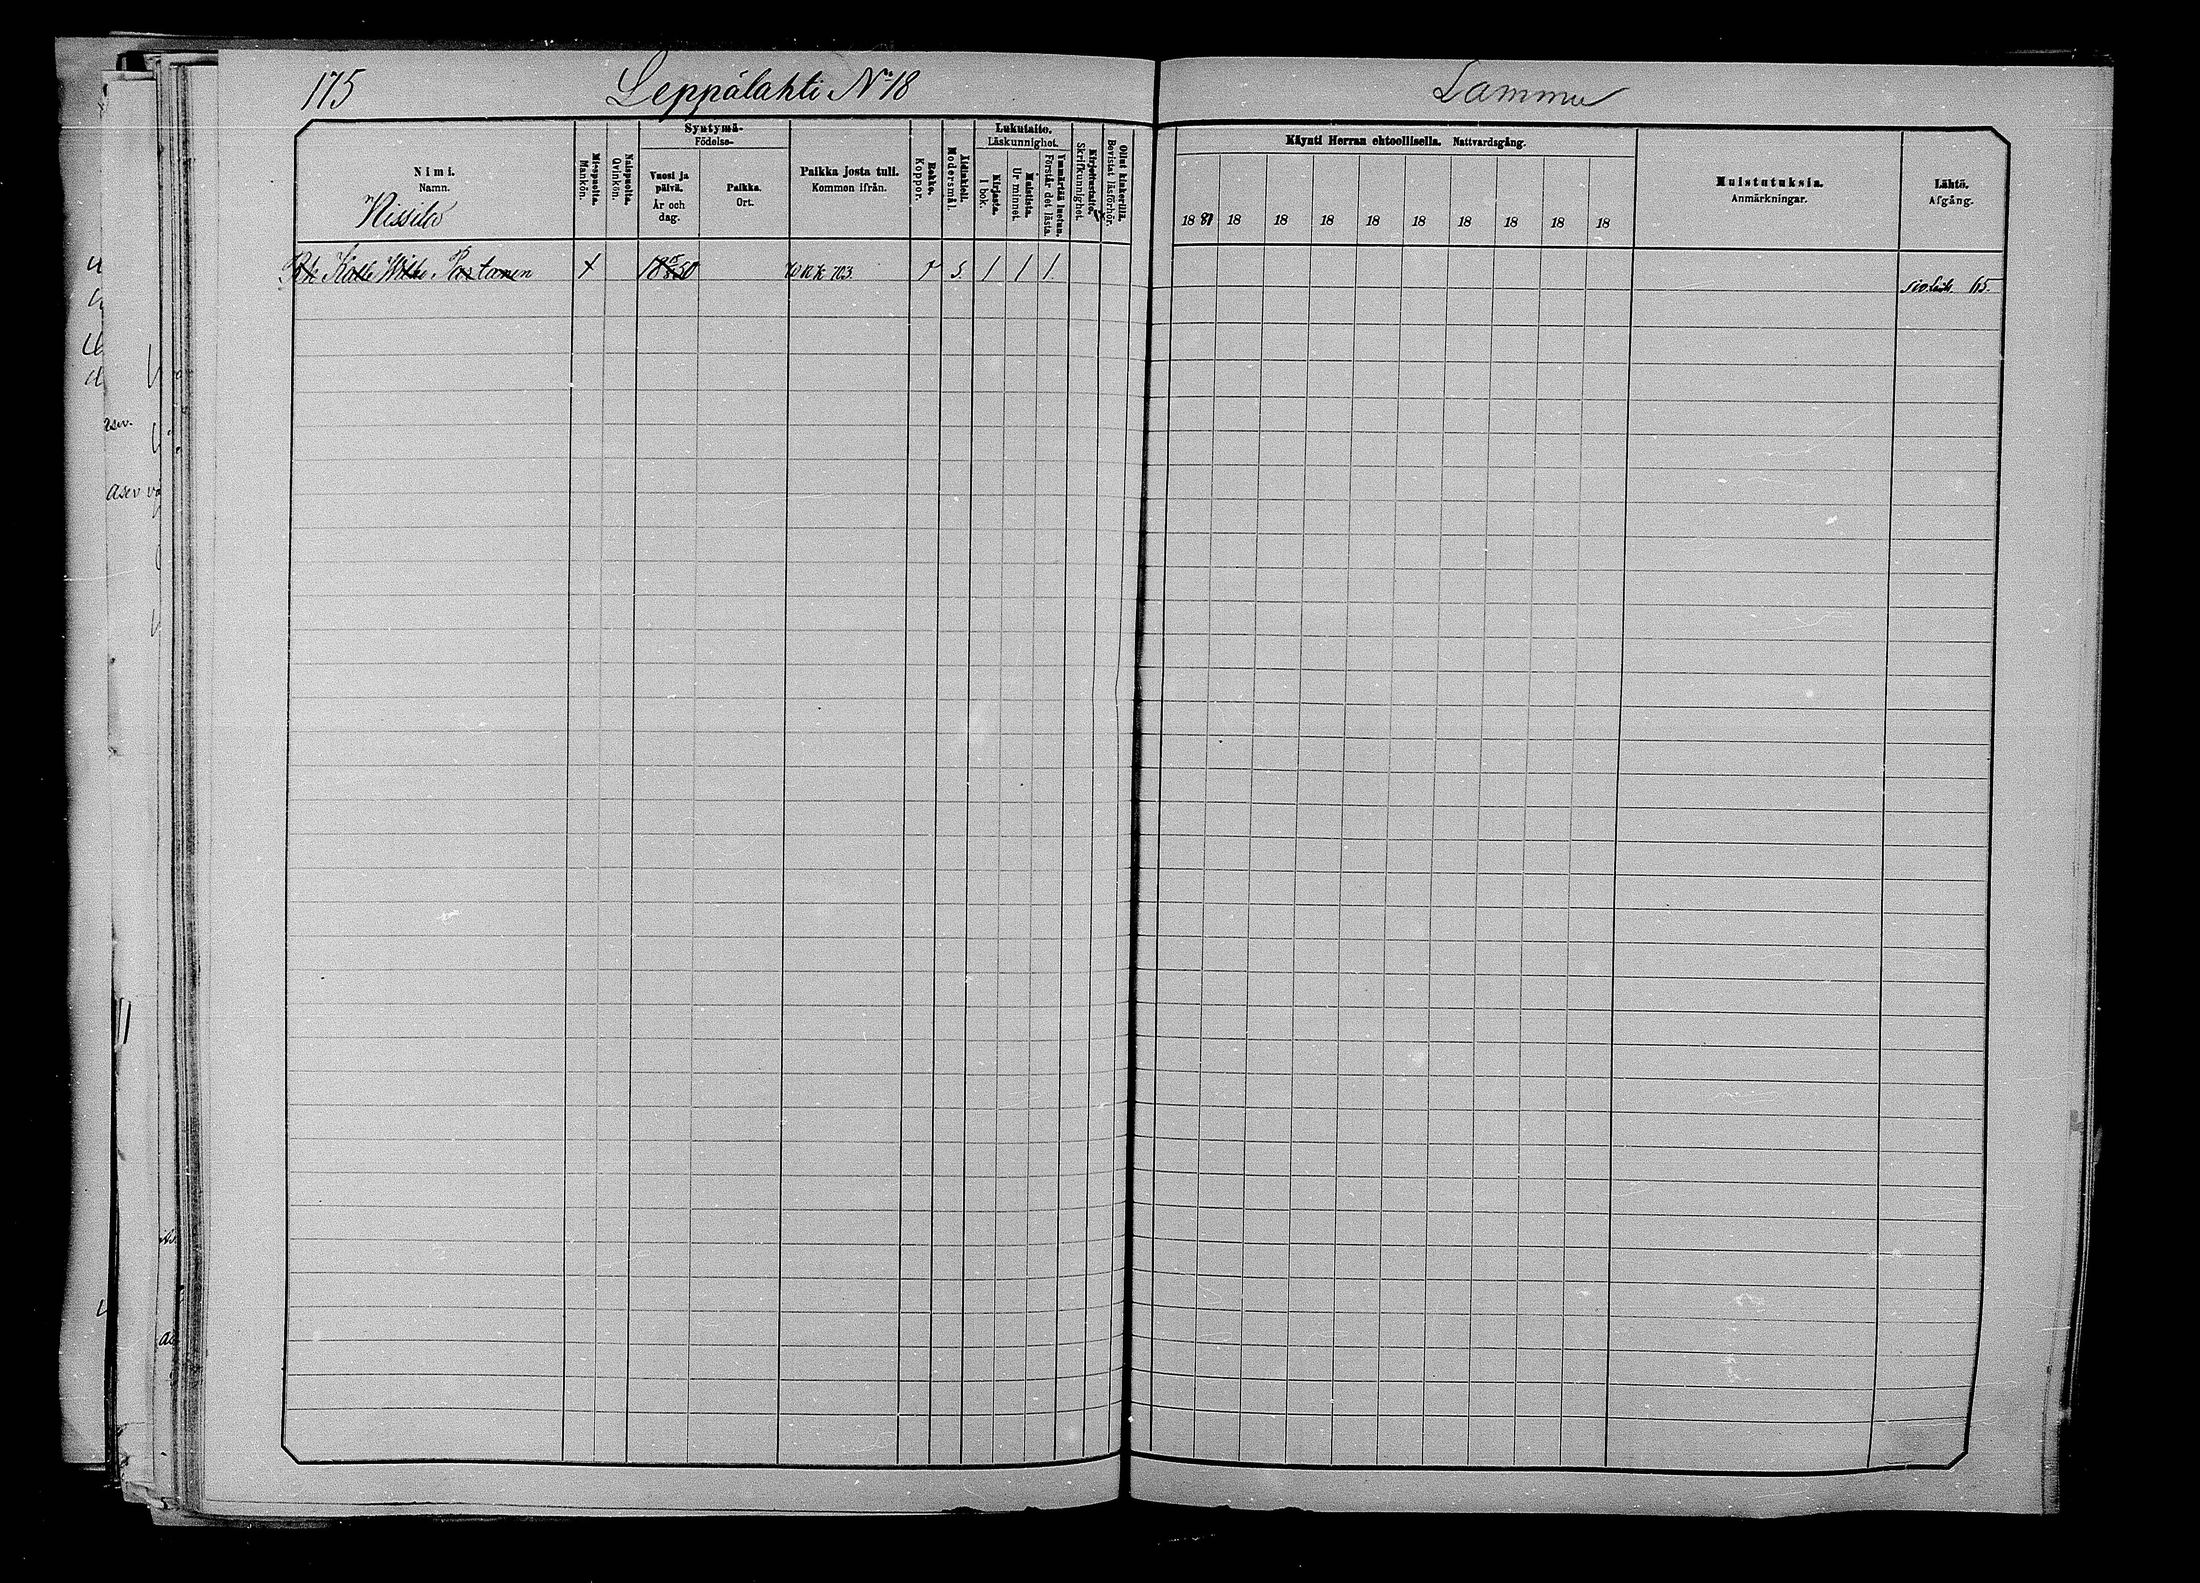 175
Leppälahti No 18
Lammu
Nimi.
Namn.
Nissilä
Miespuolta.
Mankön.
Naispuolta.
Qvinkön.
Syntymä-
Födelse-
Vuosi ja päivä.
År och dag.
Paikka.
Ort.
Paikka josta tuli.
Kommen ifrån.
Rokko.
Koppor.
Äidinkieli.
Modersmål.
Lukutaito.
Läskunnighet.
Kirjasta.
I bok.
Muistista.
Ur minnet.
Ymmärtää luetun.
Förstår det lästa.
Kirjoitustaito.
Skrifkunnighet.
Ollut kinkerillä.
Bevistat läsförhör.
Käynti Herran ehtoollisella. Nattvardsgång.
18 81 18 18 18 18 18 18 18 18 18
Muistutuksia.
Anmärkningar.
Lähtö.
Afgång.
Partanen 703 r s. 1 1 1.
65.